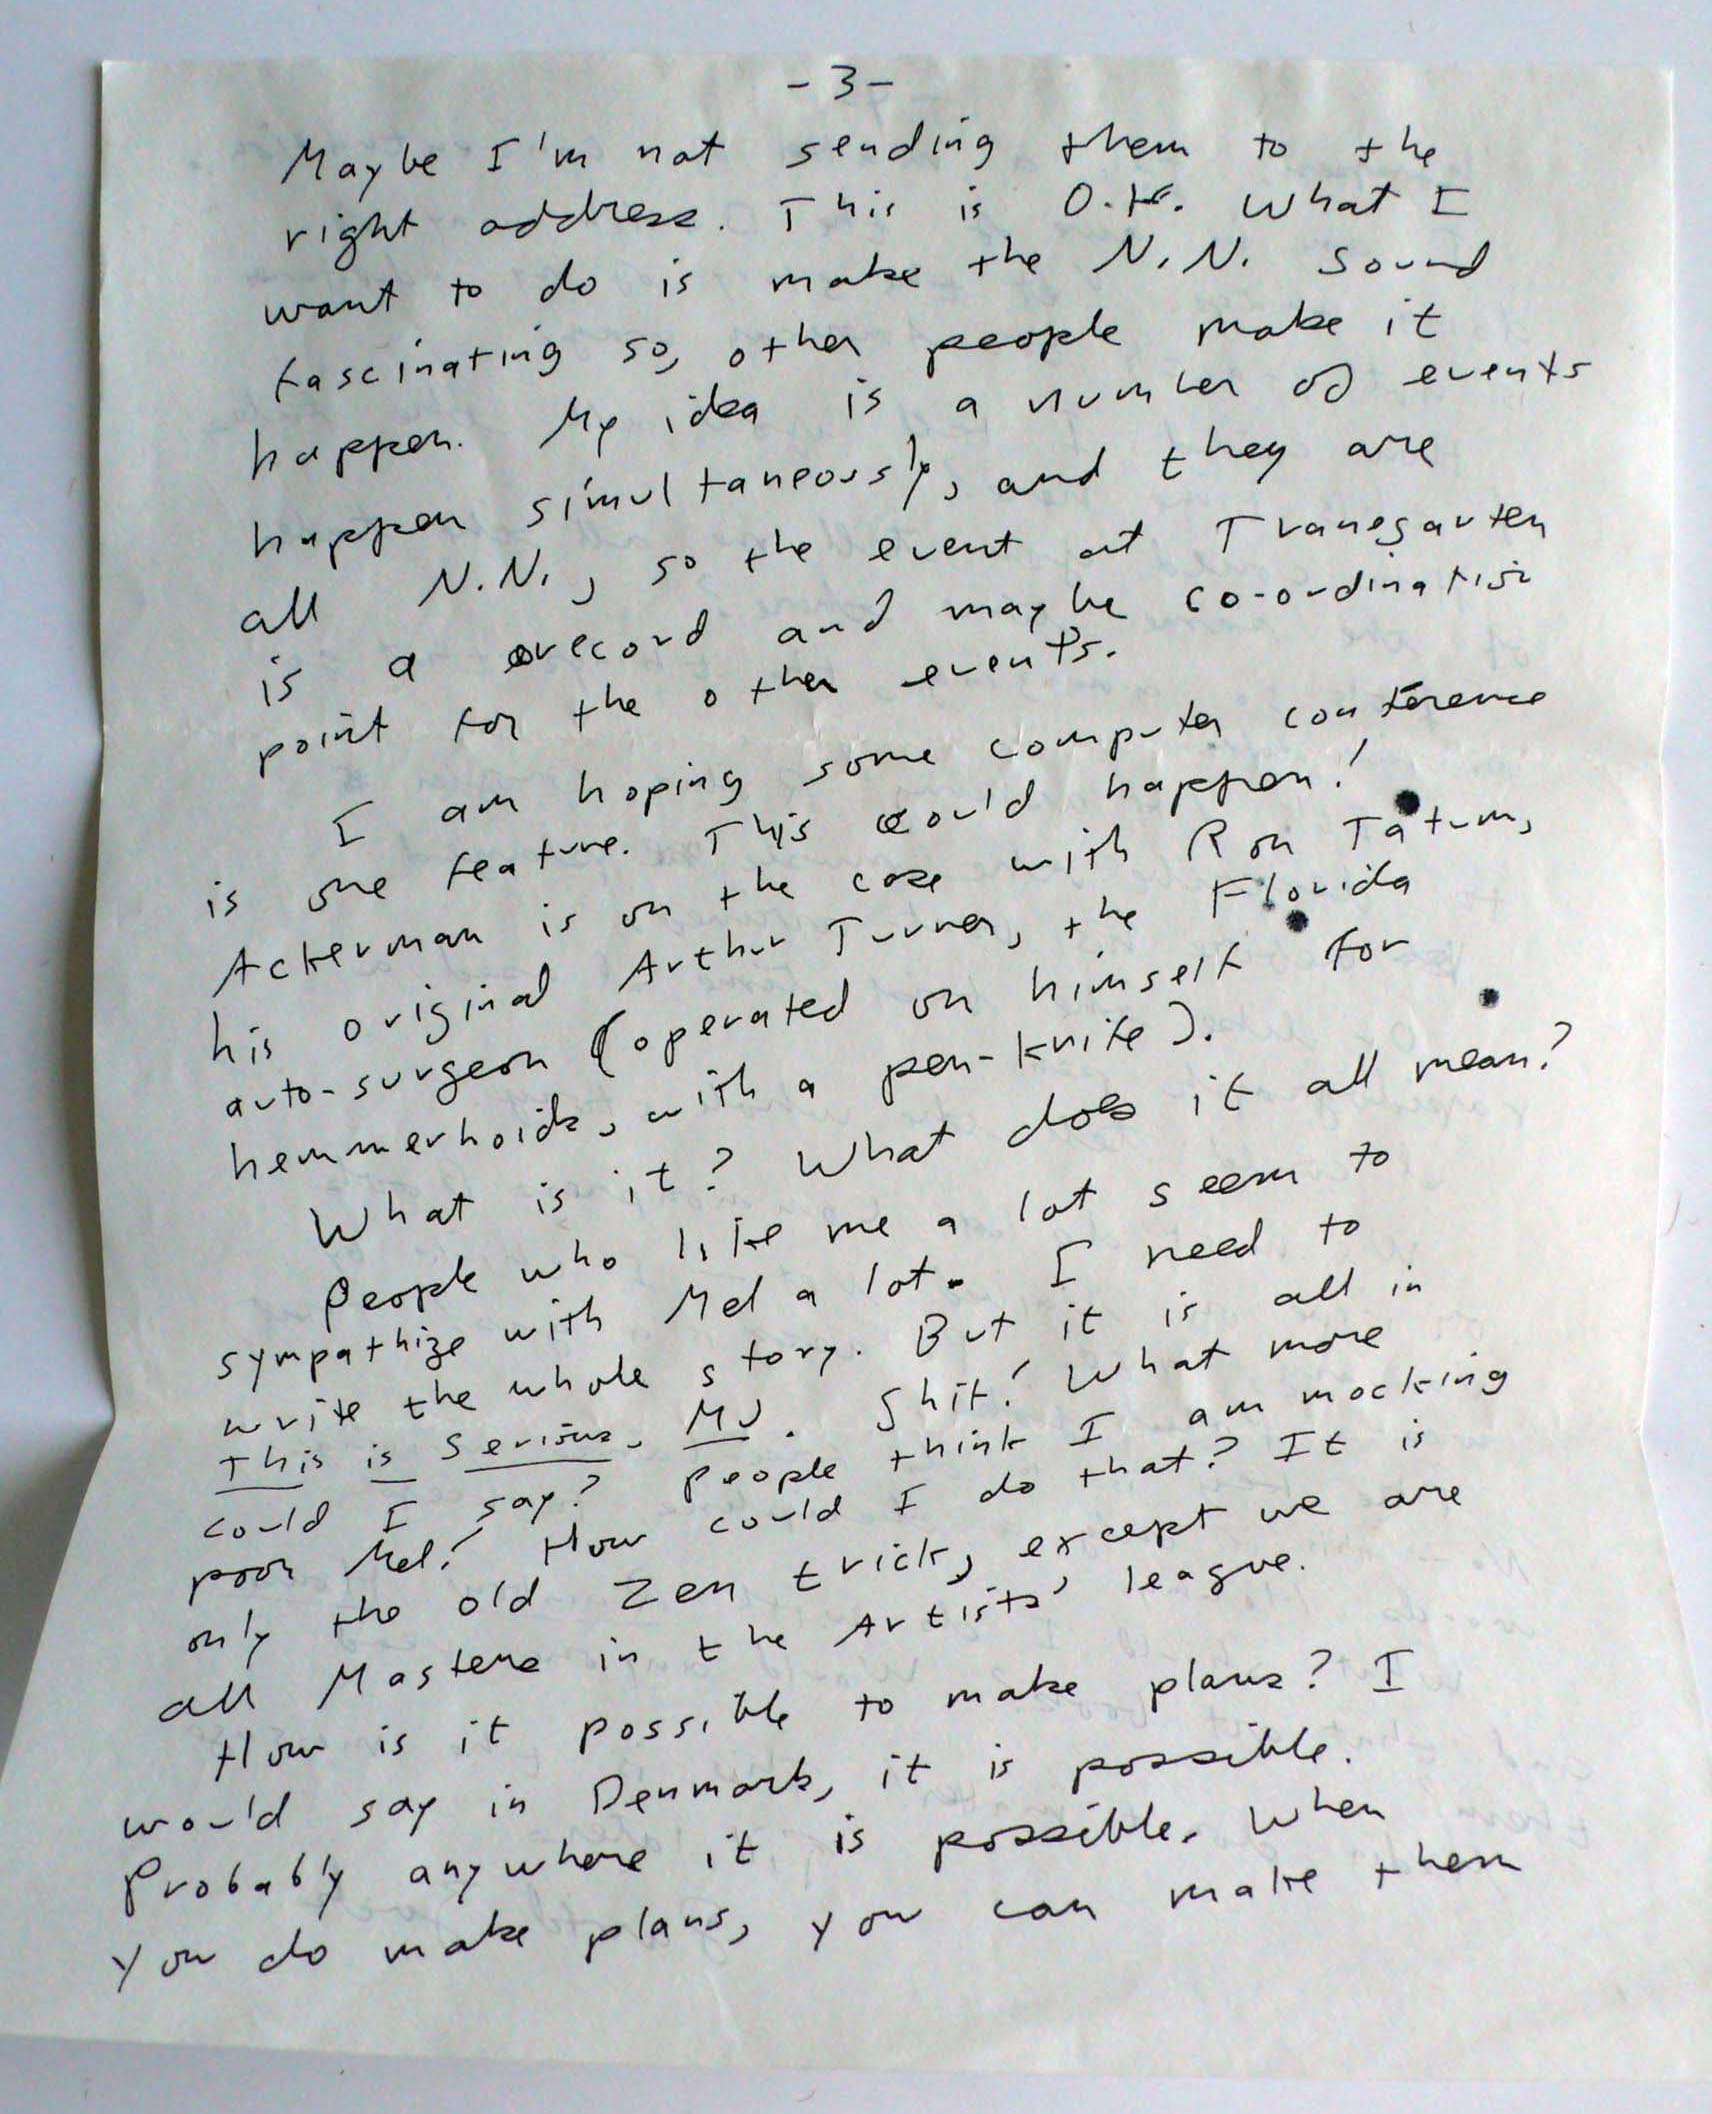 - 3 -
Maybe I'm not sending them to the
right address. This is O.K. What I
want to do is make the N.N. sound
fascinating so, other people make it
happen. My idea is a number of events
happen simultaneously, and they are
all N.N., so the event at Tranegarten
is a record and maybe co-ordination
point for the other events.
I am hoping some computer conference
is one feature. This could happen!
Ackerman is on the case with Ron Tatum,
his original Arthur Turner, the Florida
auto-surgeon (operated on himself for
hemmerhoids, with a pen-knife).
What is it? What does it all mean?
People who like me a lot seem to
sympathize with Mel a lot. I need to
write the whole story. But it is all in
This is Serious, MJ. Shit! What more
could I say? People think I am mocking
poor Mel! How could I do that? It is
only the old Zen trick, except we are
all Masters in the Artists' league.
How is it possible to make plans? I
would say in Denmark, it is possible.
Probably anywhere it is possible. When
you do make plans, you can make them